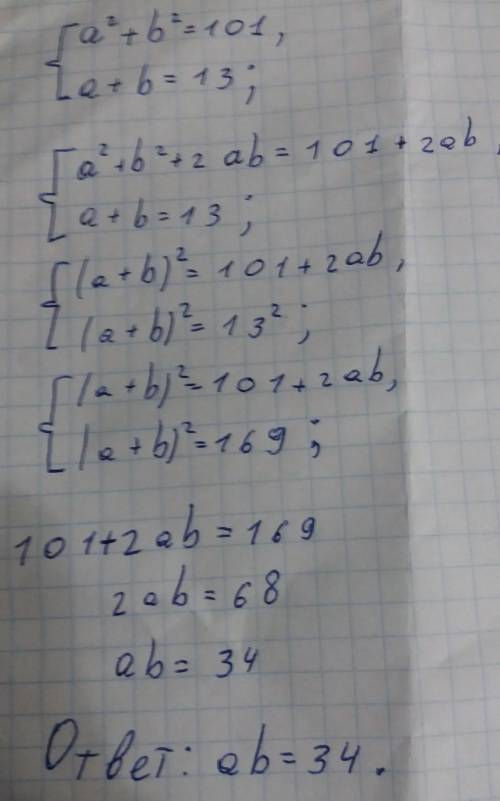 a² + b² = 101,
a + b = 13;
a² + b² + 2ab = 101 + 2ab,
a + b = 13;
(a + b)² = 101 + 2ab,
(a + b)² = 13²;
(a + b)² = 101 + 2ab,
(a + b)² = 169;
101 + 2ab = 169
2ab = 68
ab = 34
Ответ: ab = 34.